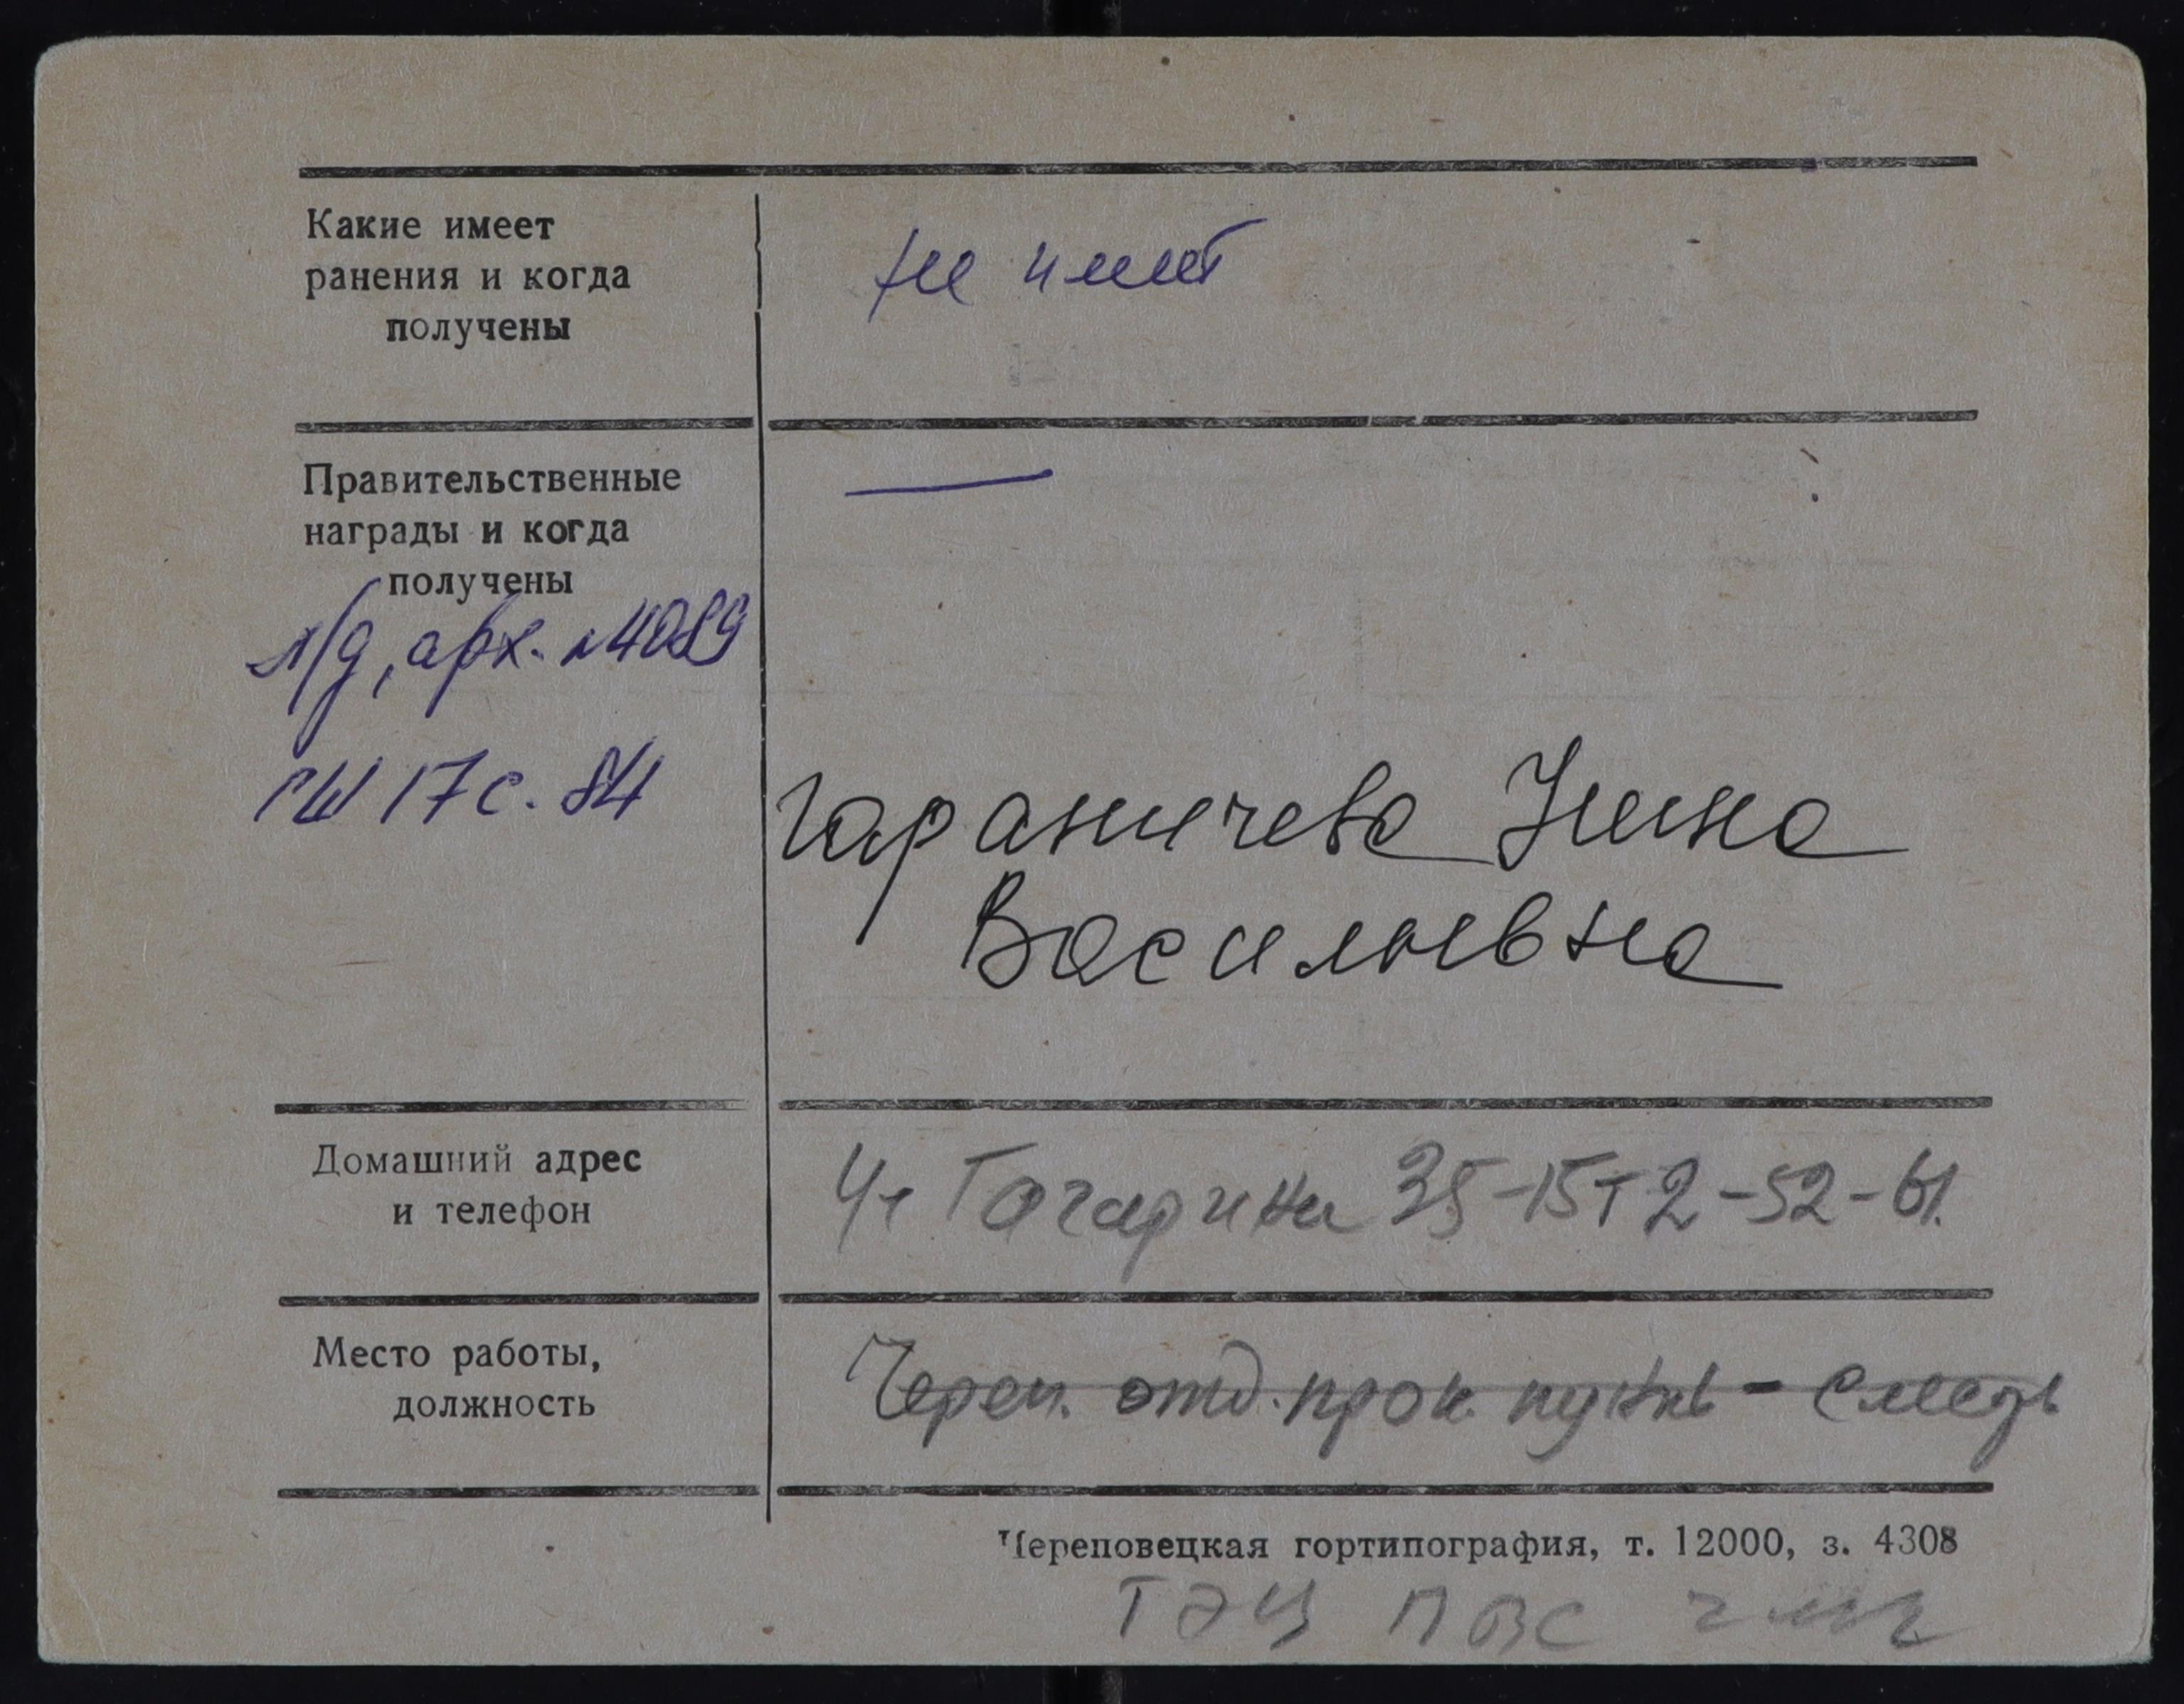 Какие имеет
ранения и когда
получены
не имеет
Правительственные
награды и когда
получены
л/д, арх. №4089
ГШ 17 с. 84
Гараничева Нина
Васильевна
Домашний адрес
и телефон
Гагарина 35-15 т 2-52-61.
Место работы,
должность
Череп. отд. прок.
Череповецкая гортипография, т. 12000, з. 4308
ТЭЦ ПВС